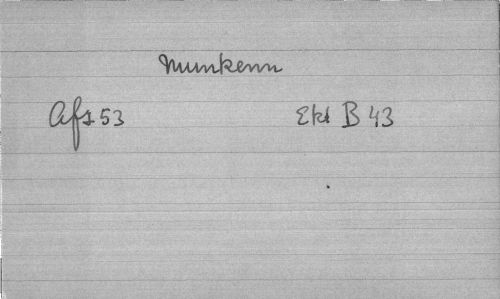 Munkenn
Afs 53 Ekl B 43